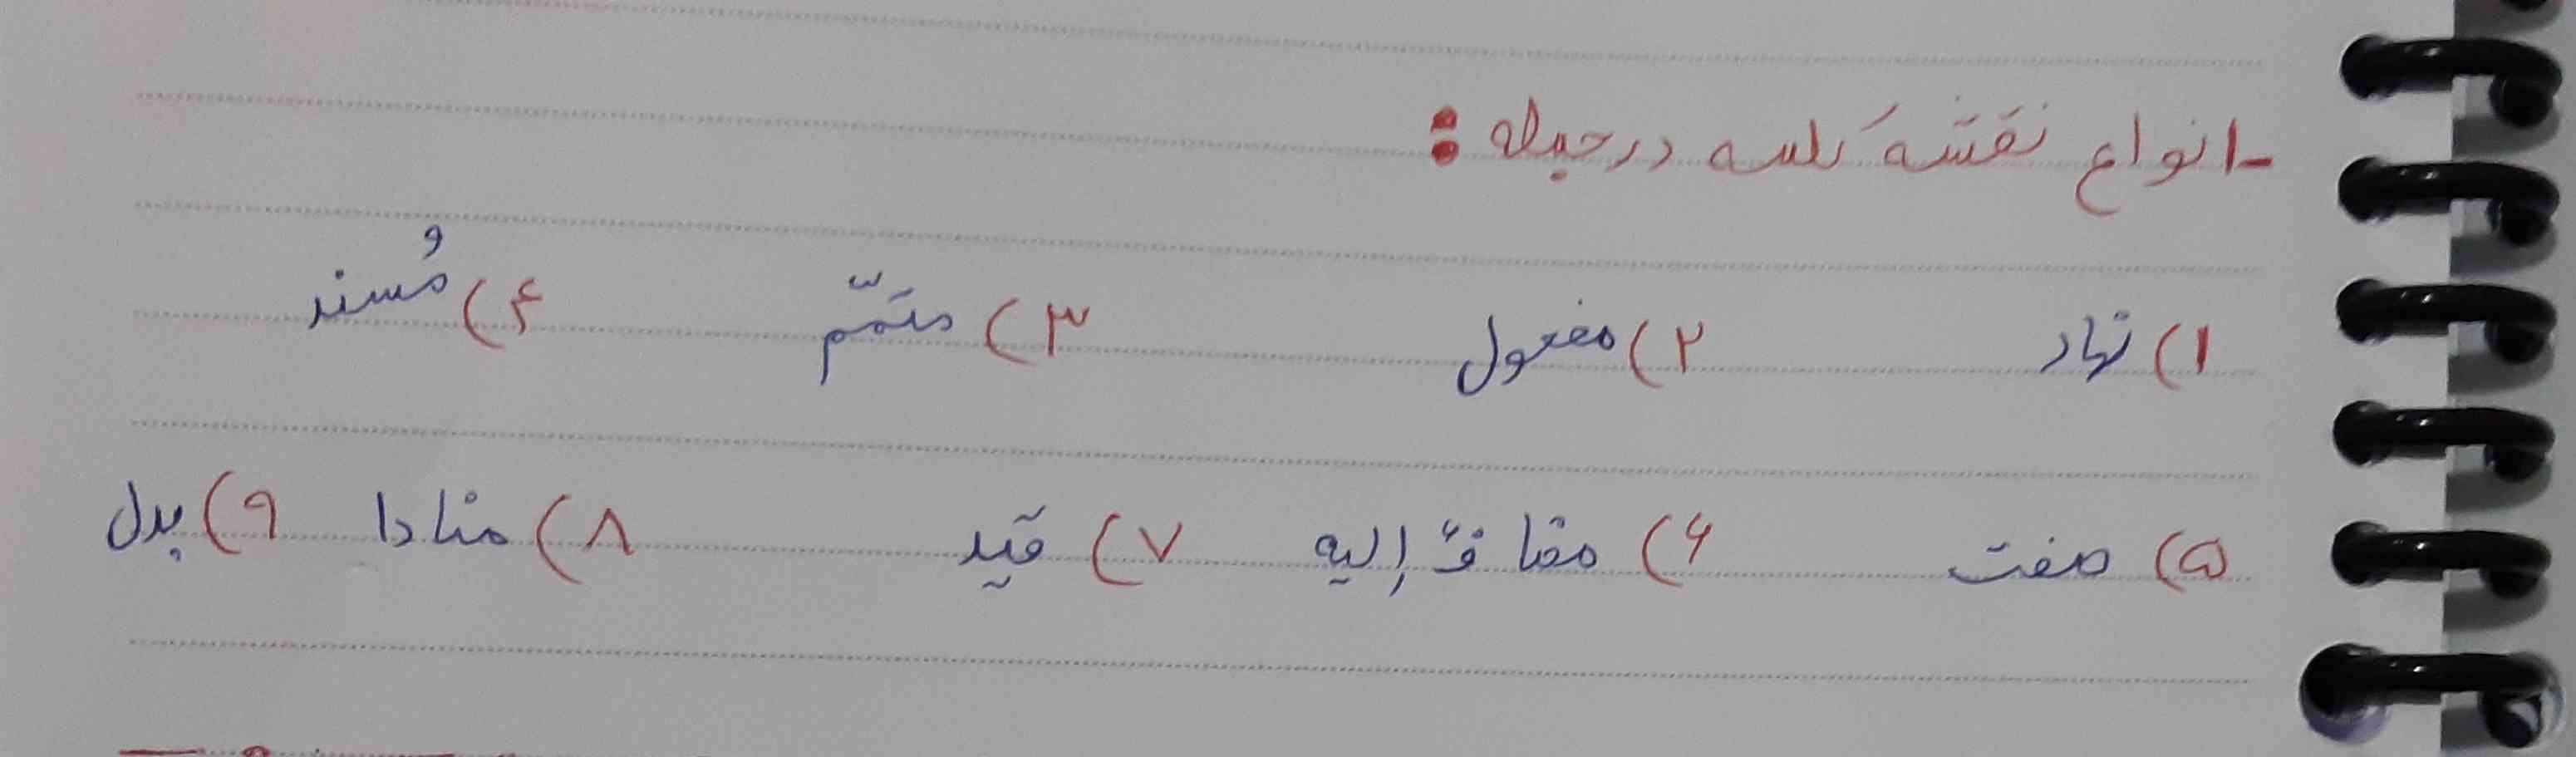 -انواع نقش کلمه در جمله :
۱) نهاد ۲) مفعول ۳) متمّم ۴) مُسند و
۵) صفت ۶) مضافٌ إلیه ۷) قید ۸) منادا ۹) بدل